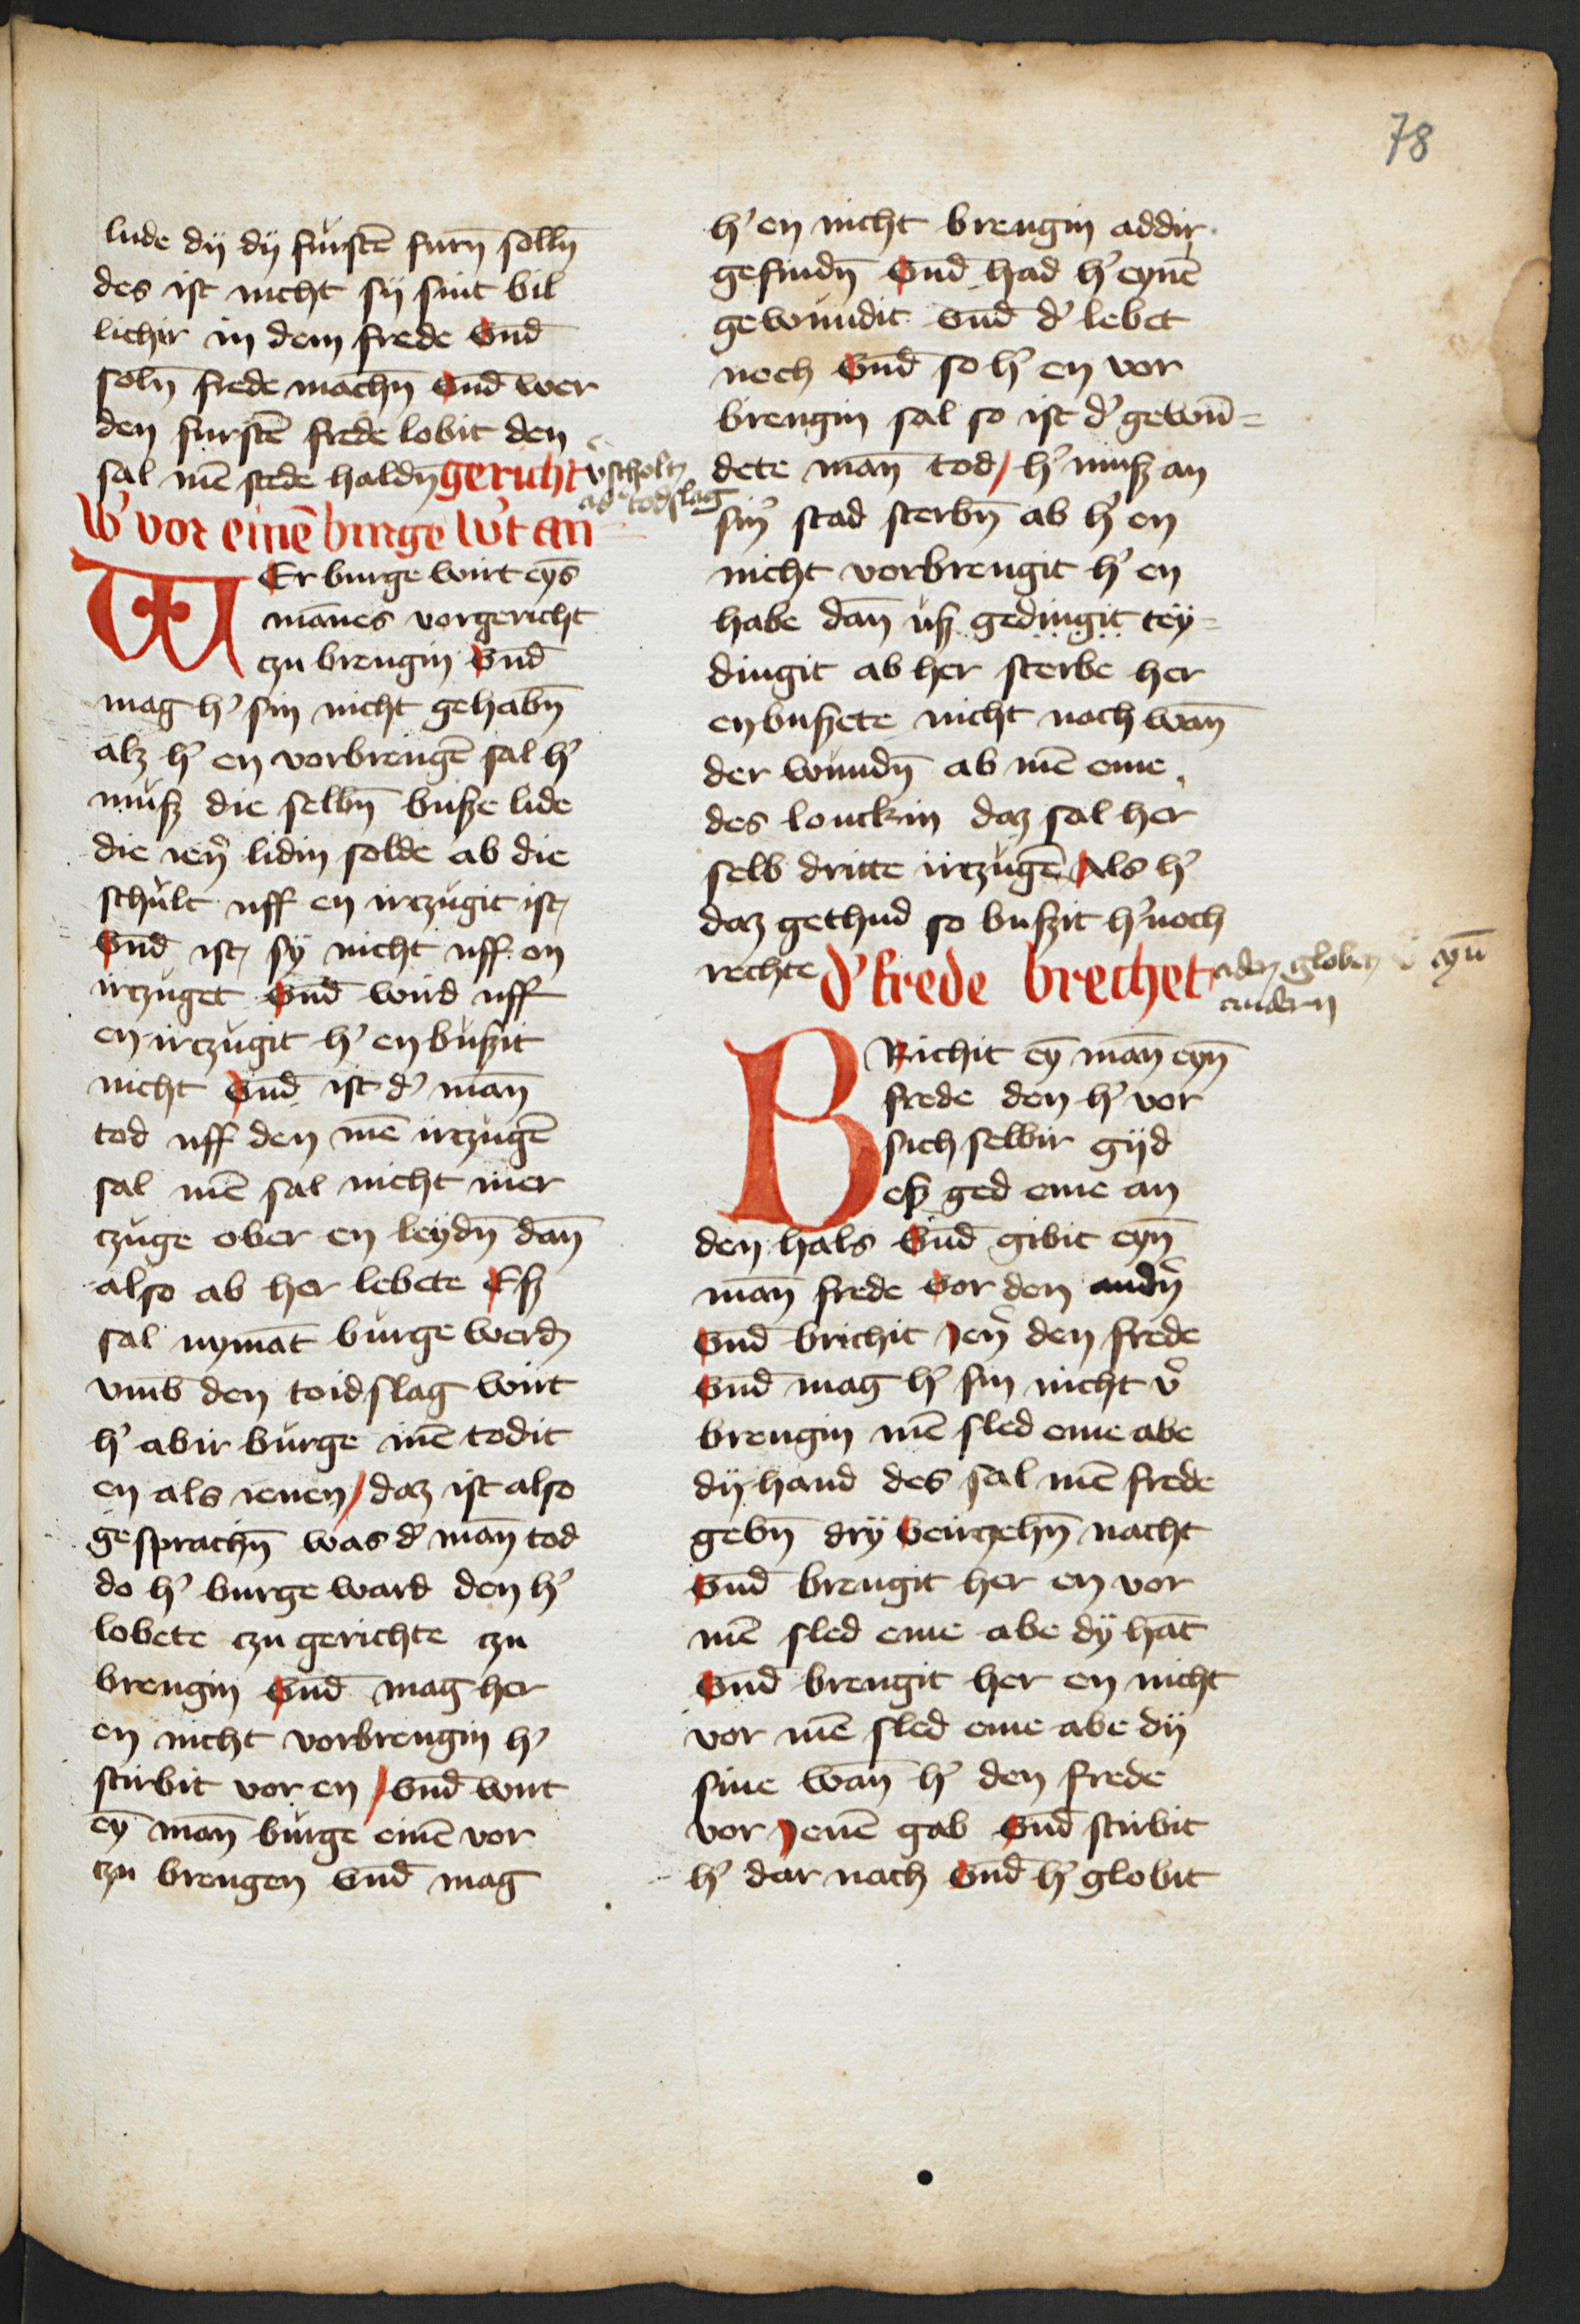 78
lude dy dy furstē furn̄ solln̄
des ist nicht sy sint bil
lichir in dem frede vnd̄
soln̄ frede machn̄ vnd̄ wer
den furstē frede lobit den
sal mē stede haldn̄ gericht
ad' todslag
w' vor einē burge w't an
WEr burge wirt eys̄
mānes vorgericht
czu brengin vnd̄
mag h' sin nicht gehabn̄
alz h' en vorbrengē sal h'
muß die selbn̄ buße lide
die ien̄ lidin solde ab die
schult uff en irczugit ist
vnd̄ ist sy nicht uff en
irczuget vnd̄ wird uff
en irczugit h' en bußit
nicht vnd̄ ist d' man̄
tod uff den mē irczugē
sal mē sal nicht mer
czuge ober en leydn̄ dan̄
also ab her lebete Eß
sal nymāt burge werdn
vmb den toidslag wirt
h' abir burge mē todit
en als ienen / daz ist also
gesprachn̄ was d' man̄ tod
do h' burge ward den h'
lobete czu gerichte czu
brengin vnd̄ mag her
en nicht vorbrengin h'
stirbit vor en / vnd̄ wirt
eȳ man̄ burge einē vor
czu brengen vnd̄ mag
h' en nicht brengin addir
gefindn̄ vnd̄ had h' eynē
gewundit vnd̄ d' lebet
noch vnd̄ so h' en vor
brengin sal so ist d' gewū=
dete man̄ tod / h' muß an
sin' stad sterbn̄ ab h' en
nicht vorbrengit h' en
habe dan̄ uß gedingit tey=
dingit ab her sterbe her
enbußete nicht noch wan̄
der wundn̄ ab mē eme
des louckin daz sal her
selb dritte irczugē Als h'
daz gethud so bußit h' noch
rechte d' frede brechet
aden globen eyn̄
andern
BRichit eȳ man̄ eyn̄
frede den h' vor
sich selbir gyd
eß ged eme an
den hals vnd̄ gibit eyn̄
man̄ frede vor den andn̄
vnd̄ brichit jen̄ den frede
vnd̄ mag h' sin nicht v'
brengin mē sled eme abe
dy hand des sal mē frede
gebn̄ dry veirczehn̄ nacht
vnd̄ brengit her en vor
mē sled eme abe dy hāt
vnd̄ brengit her en nicht
vor mē sled eme abe dy
sine wan̄ h' den frede
vor jenē gab vnd̄ stirbit
h' dar nach vnd̄ h' globit